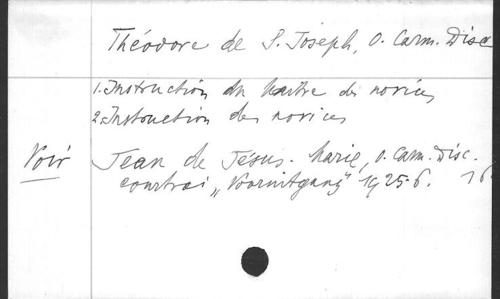 Théodore de S. Joseph, O. Carm. Disc
1. Instruction du Maître des novices
2. Instruction des novices
Voir Jean de Jésus-Marie, O. Carm. Disc.
Courtrai „Vooruitgang" 1925-6. 16